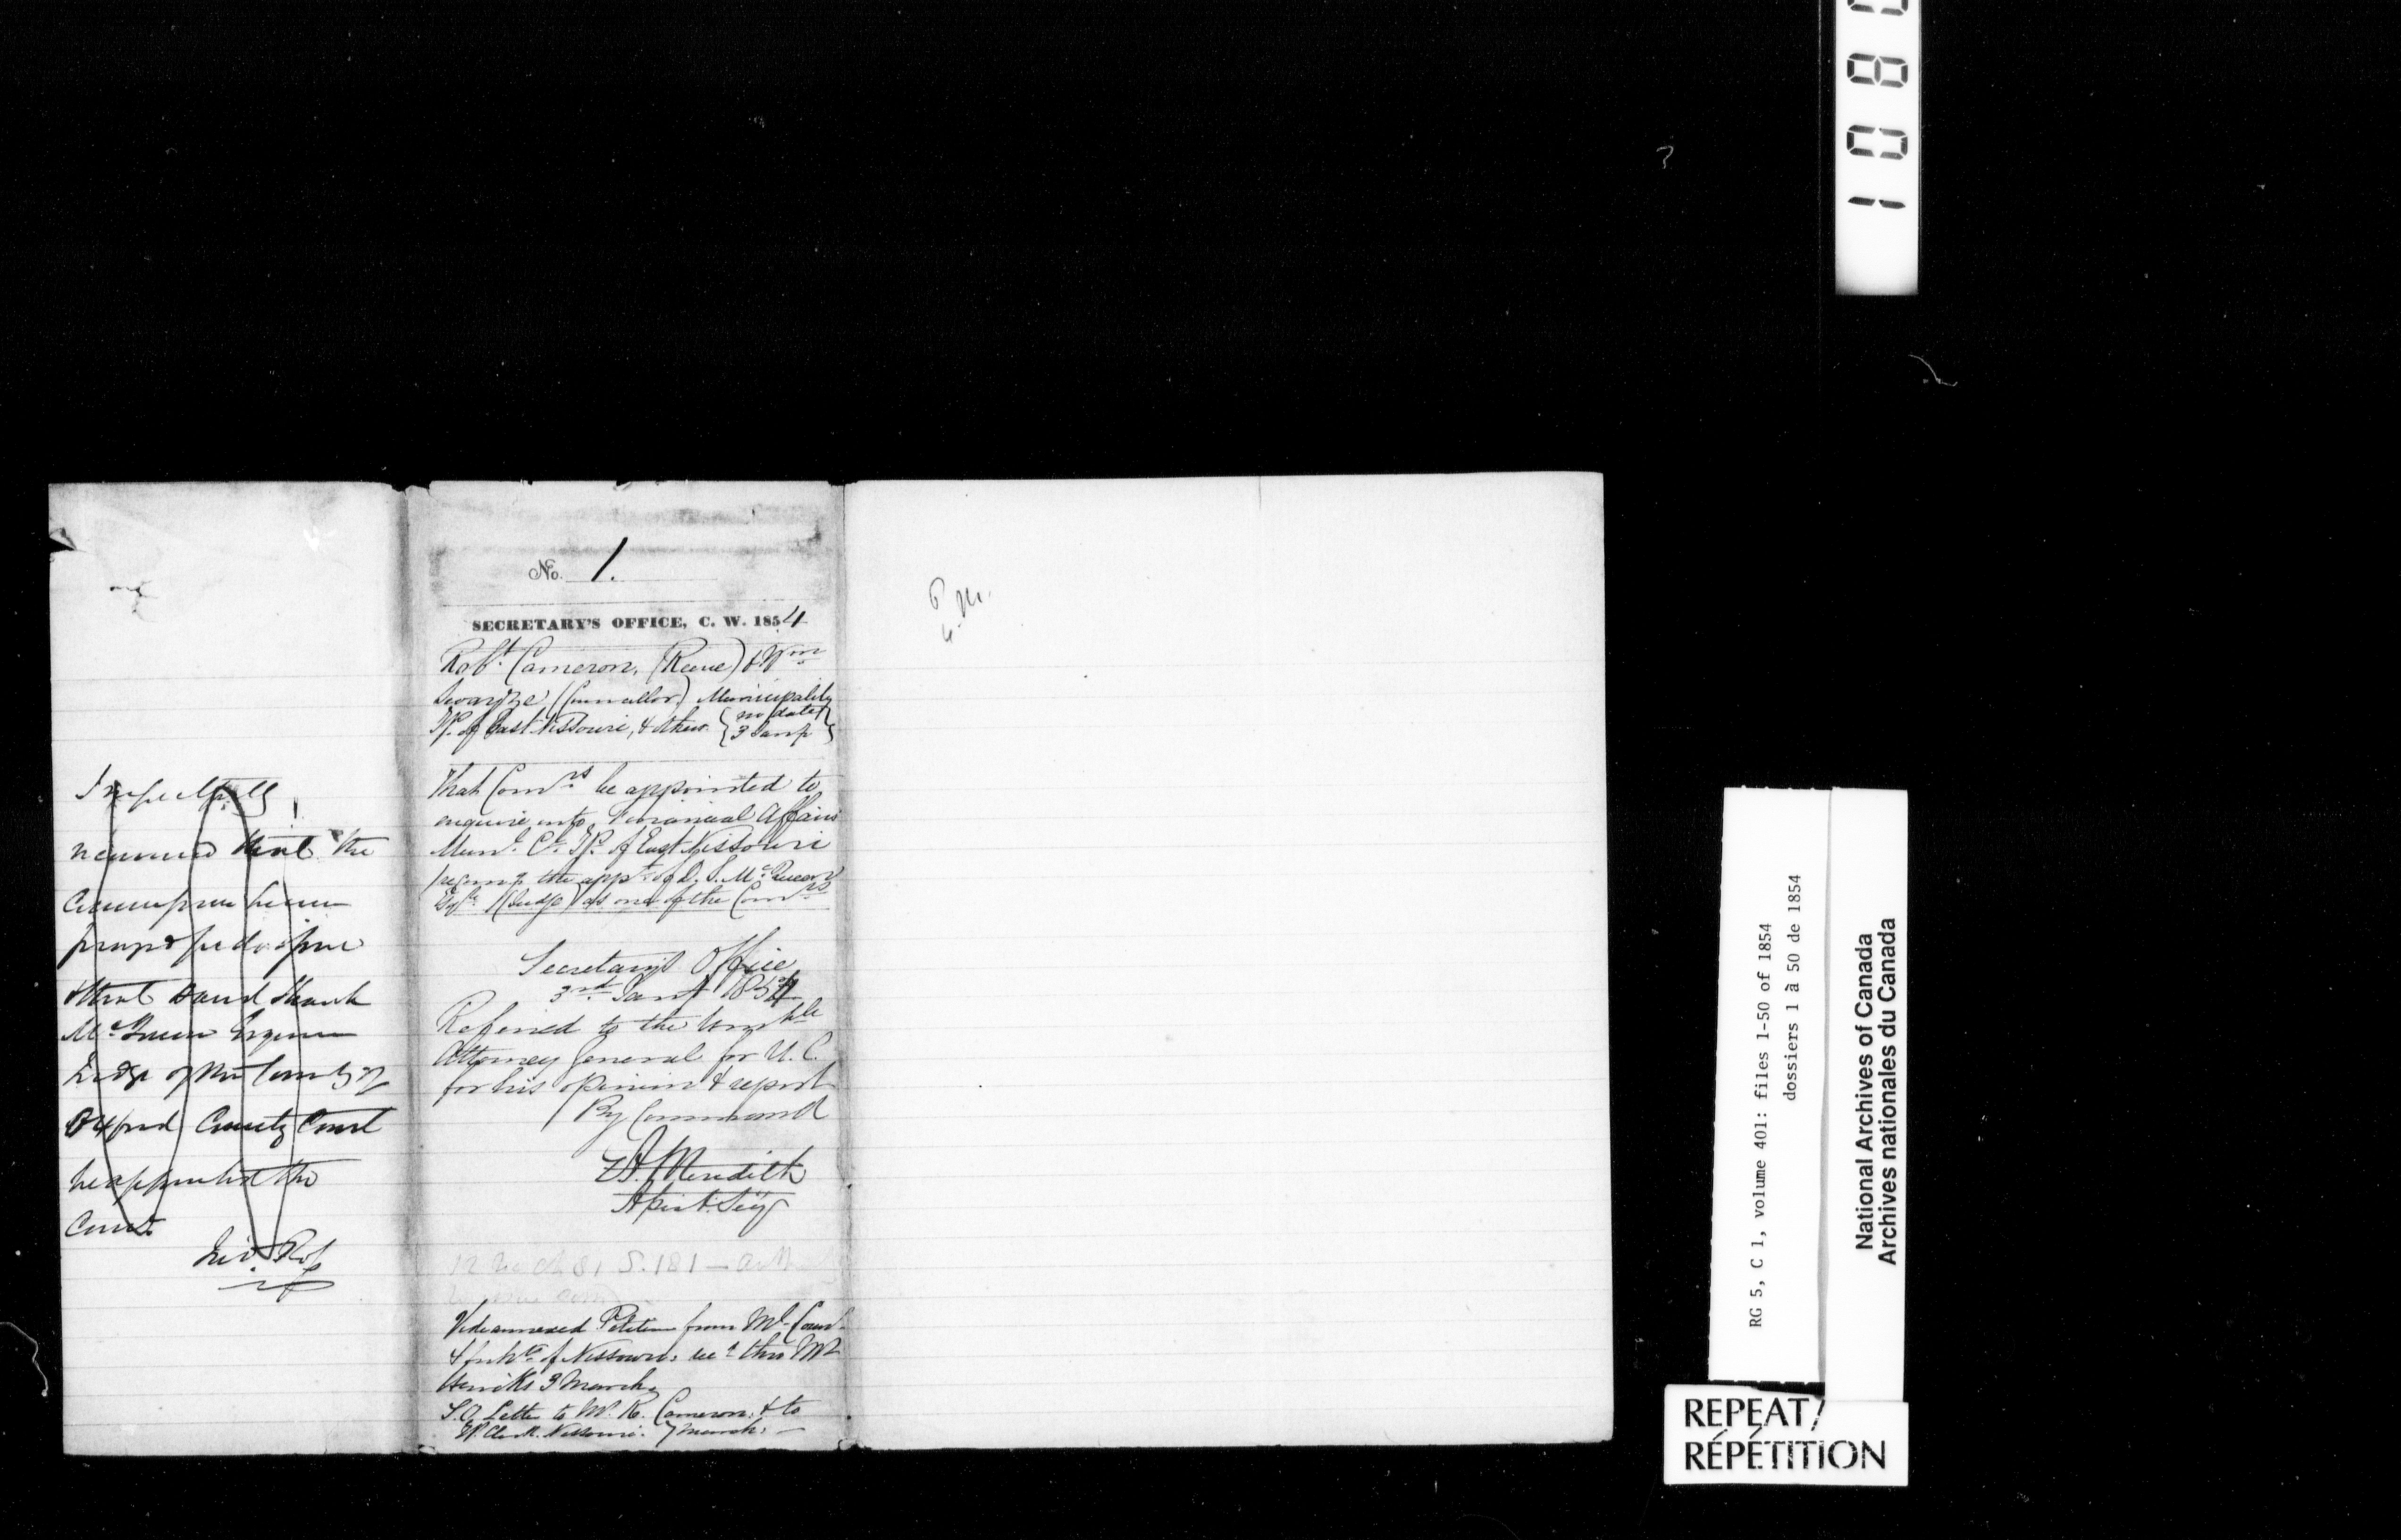 I respectfully
recommend that the
Commission be
proposed
& that David Shank
McQueen Esquire
Judge of the County of
Oxford County Court
be appointed the
Comr.
Jno. Ross
No. 1.
SECRETARY'S OFFICE, C. W. 1854
Robt. Cameron, (Reeve) & Wm
Swayze (Councillor) Municipality
Tp. of East Nissouri, & others {no date}
{3 Jany}
That Comrs be appointed to
enquire into Financial Affairs
Munl. Cl. Tp. of East Nissouri
recomg the appt of D. S. McQueen
Esqre (Judge) as one of the Comrs
Secretary's Office
3rd Jany 1854
Referred to the Honble
Attorney General for U. C.
for his opinion & report
By Command
E. A. Meredith
Assist. Secy
12 March 81 S. 181
Vide annexed Petition from Ml. Coun.
& Inhts. of Nissouri: recd thro Mr
Hincks 3 March
S.O. Letter to Mr. R. Cameron, & to
Tp. Clerk. Nissouri. 7 March. —
P. M.
1080
RG 5, C 1, volume 401: files 1-50 of 1854
dossiers 1 à 50 de 1854
National Archives of Canada
Archives nationales du Canada
REPEAT/
RÉPÉTITION